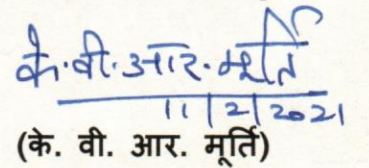 के. वी. आर. मूर्ति
11/2/2021
(के. वी. आर. मूर्ति)